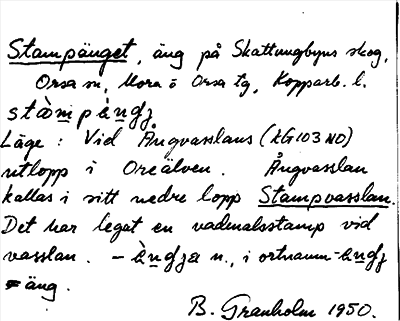 Stampänget, äng på Skattungbyns skog,
Orsa sn, Mora o Orsa tg, Kopparb. l.
Läge: Vid Ångvasslans (kG103 NO)
utlopp i Oreälven. Ångvasslan
kallas i sitt nedre lopp Stampvasslan.
Det har legat en vadmalsstamp vid
vasslan. – n., i ortnamn
= äng.
B. Granholm 1950.